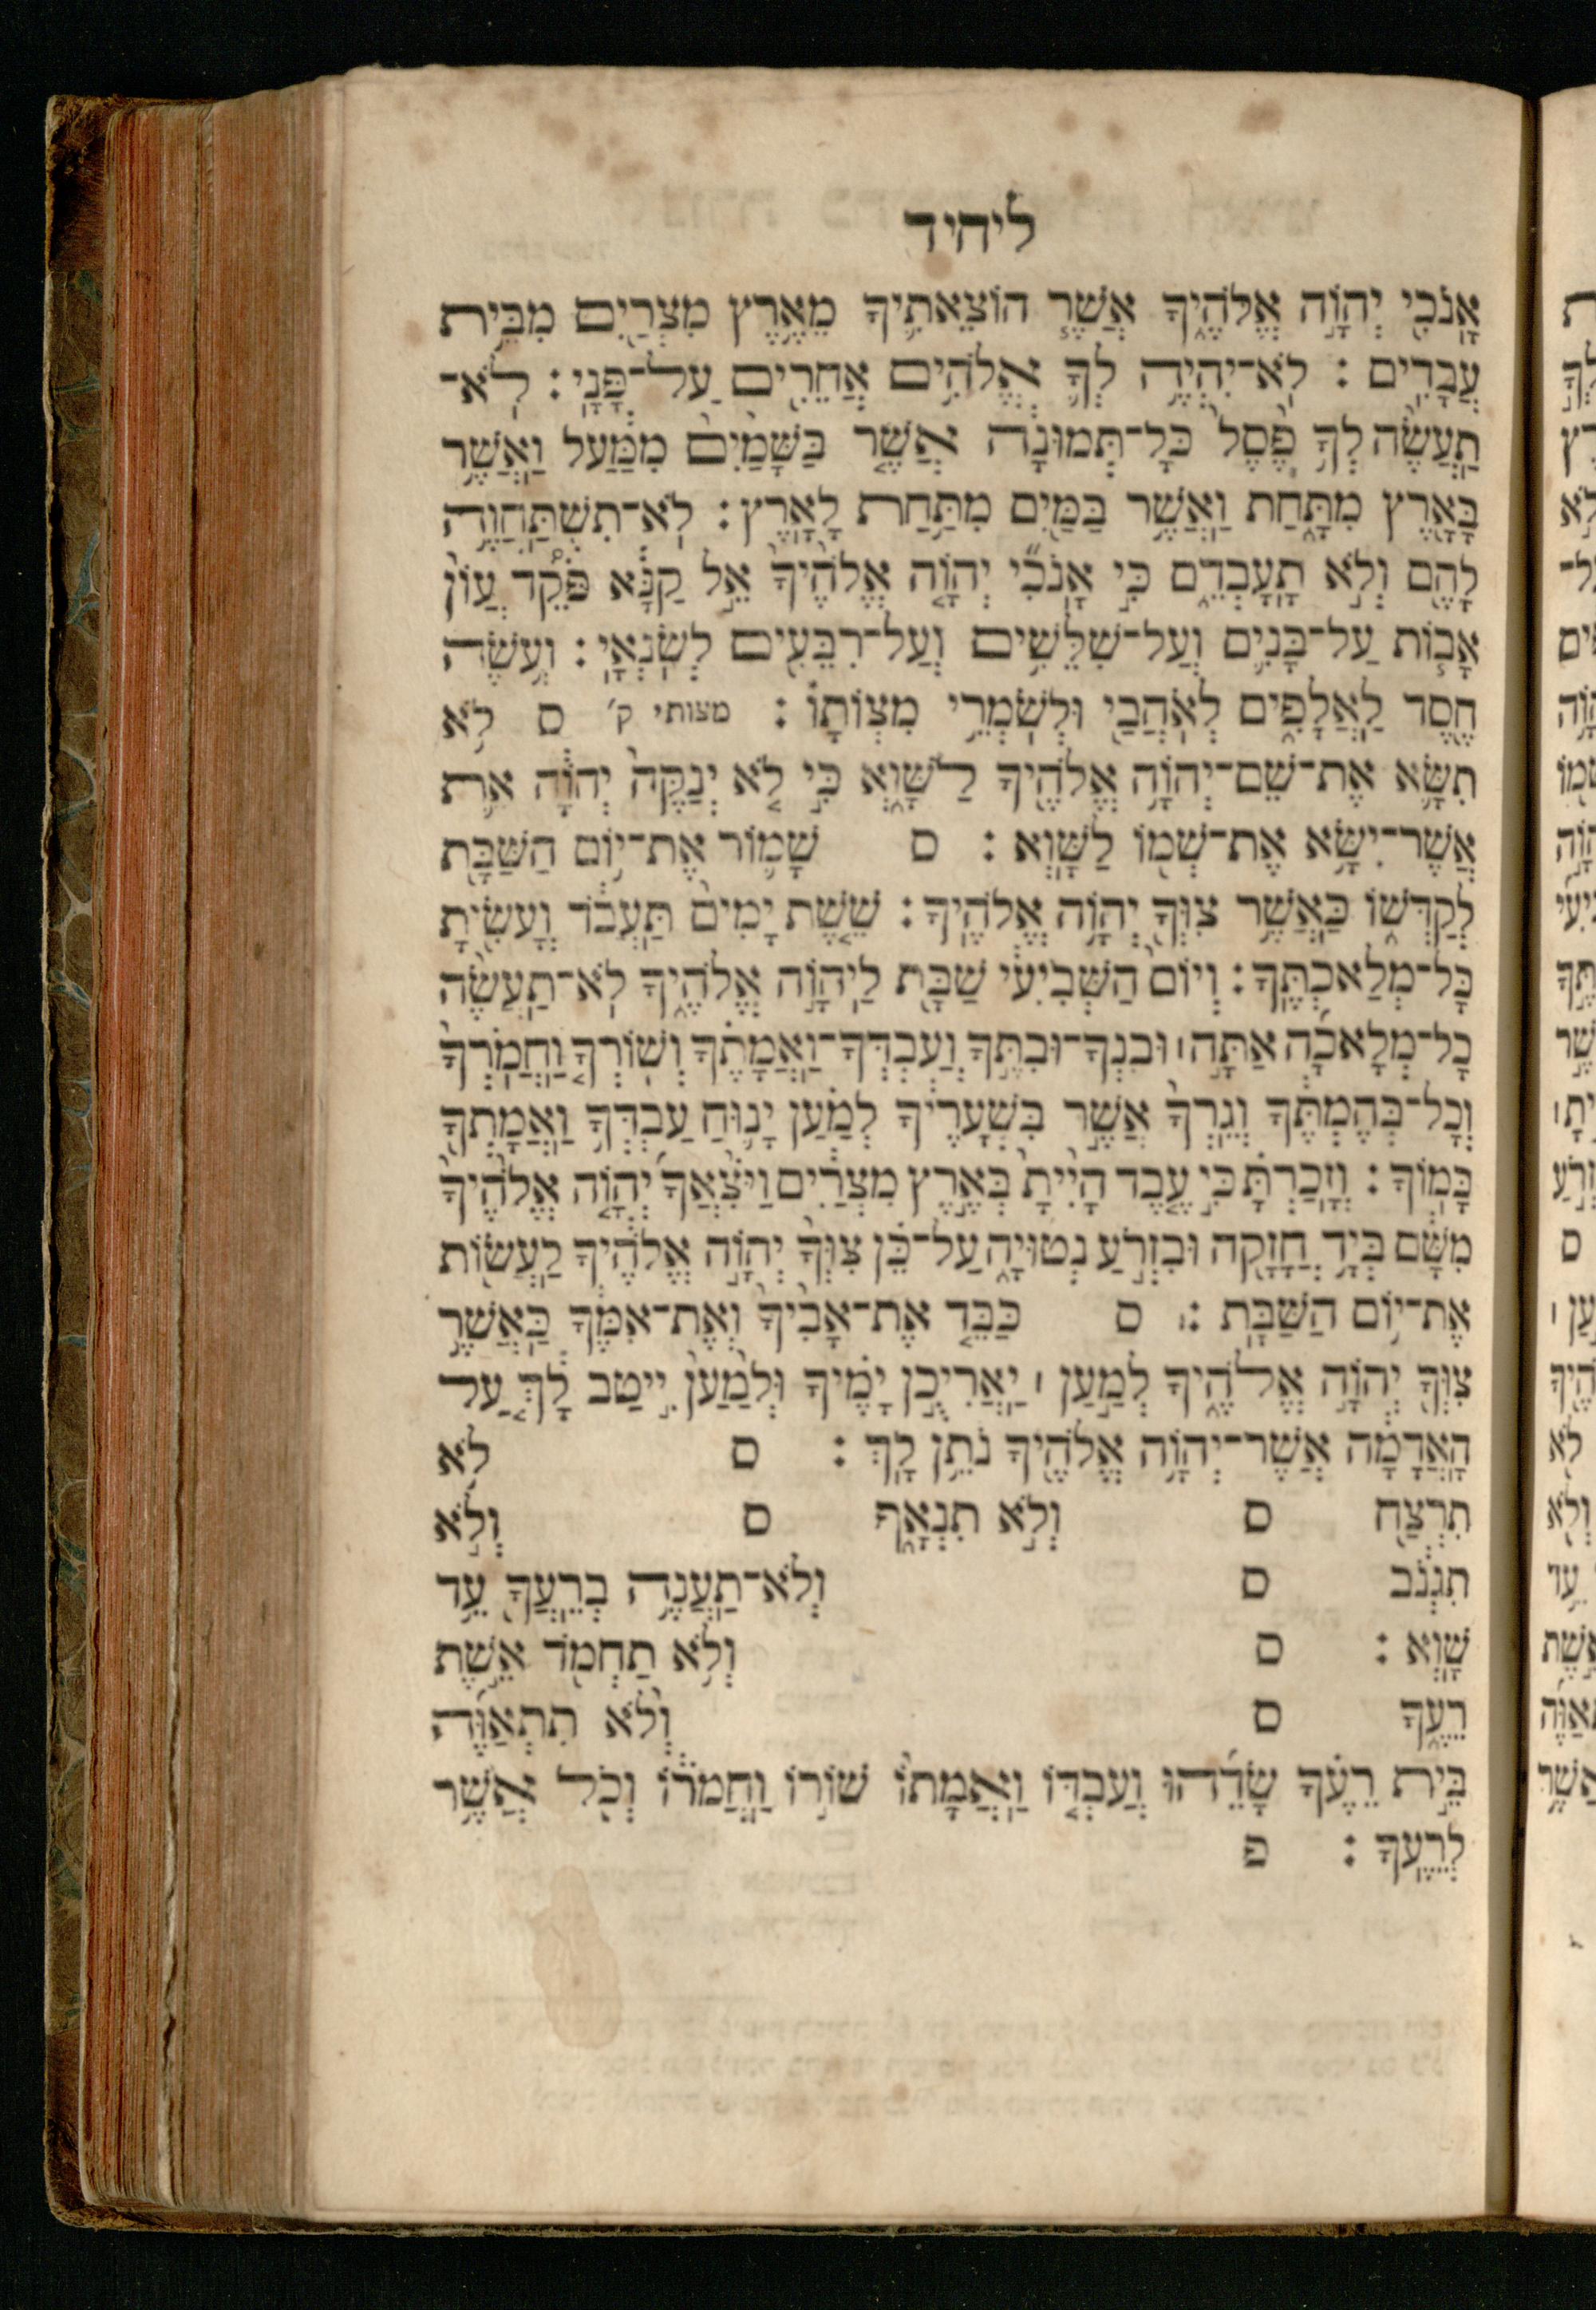 ליחיד
אָנֹכִ֖י יְהוָ֣ה אֱלֹהֶ֑יךָ אֲשֶׁ֧ר הוֹצֵאתִ֛יךָ מֵאֶ֥רֶץ מִצְרַ֖יִם מִבֵּ֥ית
עֲבָדִֽים׃ לֹֽא־יִהְיֶ֥ה לְךָ֛ אֱלֹהִ֥ים אֲחֵרִ֖ים עַל־פָּנָֽי׃ לֹֽא־
תַעֲשֶׂ֨ה לְךָ֥ פֶ֙סֶל֙ כָּל־תְּמוּנָ֔ה אֲשֶׁ֤ר בַּשָּׁמַ֙יִם֙ מִמַּ֔עַל וַאֲשֶׁ֥ר
בָּאָ֖רֶץ מִתָּ֑חַת וַאֲשֶׁ֥ר בַּמַּ֖יִם מִתַּ֥חַת לָאָֽרֶץ׃ לֹֽא־תִשְׁתַּחֲוֶ֥ה
לָהֶ֖ם וְלֹ֣א תָעָבְדֵ֑ם כִּ֣י אָנֹכִ֞י יְהוָ֤ה אֱלֹהֶ֙יךָ֙ אֵ֣ל קַנָּ֔א פֹּ֠קֵד עֲוֺ֨ן
אָב֧וֹת עַל־בָּנִ֛ים וְעַל־שִׁלֵּשִׁ֥ים וְעַל־רִבֵּעִ֖ים לְשֹׂנְאָֽי׃ וְעֹ֥שֶׂה
חֶ֖סֶד לַֽאֲלָפִ֑ים לְאֹהֲבַ֖י וּלְשֹׁמְרֵ֥י מִצְוֺתָֽו׃ מצותי ק׳ ס לֹ֥א
תִשָּׂ֛א אֶת־שֵֽׁם־יְהוָ֥ה אֱלֹהֶ֖יךָ לַשָּׁ֑וְא כִּ֣י לֹ֤א יְנַקֶּה֙ יְהוָ֔ה אֵ֛ת
אֲשֶׁר־יִשָּׂ֥א אֶת־שְׁמ֖וֹ לַשָּֽׁוְא׃ ס שָׁמ֛וֹר אֶת־י֥וֹם הַשַּׁבָּ֖ת
לְקַדְּשׁ֑וֹ כַּאֲשֶׁ֥ר צִוְּךָ֖ יְהוָ֥ה אֱלֹהֶֽיךָ׃ שֵׁ֤שֶׁת יָמִים֙ תַּֽעֲבֹ֔ד וְעָשִׂ֖יתָ
כָּל־מְלַאכְתֶּֽךָ׃ וְיוֹם֙ הַשְּׁבִיעִ֔י שַׁבָּ֖ת לַיהוָ֣ה אֱלֹהֶ֑יךָ לֹֽא־תַעֲשֶׂ֨ה
כָל־מְלָאכָ֜ה אַתָּ֣ה ׀ וּבִנְךָ־וּבִתֶּ֣ךָ וְעַבְדְּךָ־וַ֠אֲמָתֶךָ וְשׁוֹרְךָ֨ וַחֲמֹֽרְךָ֜
וְכָל־בְּהֶמְתֶּ֗ךָ וְגֵֽרְךָ֙ אֲשֶׁ֣ר בִּשְׁעָרֶ֔יךָ לְמַ֗עַן יָנ֛וּחַ עַבְדְּךָ֥ וַאֲמָתְךָ֖
כָּמֽוֹךָ׃ וְזָכַרְתָּ֗ כִּ֣י עֶ֤בֶד הָיִ֙יתָ֙ בְּאֶ֣רֶץ מִצְרַ֔יִם וַיֹּצִ֨אֲךָ֜ יְהוָ֤ה אֱלֹהֶ֙יךָ֙
מִשָּׁ֔ם בְּיָ֥ד חֲזָקָ֖ה וּבִזְרֹ֣עַ נְטוּיָ֑ה עַל־כֵּ֗ן צִוְּךָ֙ יְהוָ֣ה אֱלֹהֶ֔יךָ לַעֲשׂ֖וֹת
אֶת־י֥וֹם הַשַּׁבָּֽת׃ ס כַּבֵּ֤ד אֶת־אָבִ֙יךָ֙ וְאֶת־אִמֶּ֔ךָ כַּאֲשֶׁ֥ר
צִוְּךָ֖ יְהוָ֣ה אֱלֹהֶ֑יךָ לְמַ֣עַן ׀ יַאֲרִיכֻ֣ן יָמֶ֗יךָ וּלְמַ֙עַן֙ יִ֣יטַב לָ֔ךְ עַ֚ל
הָֽאֲדָמָ֔ה אֲשֶׁר־יְהוָ֥ה אֱלֹהֶ֖יךָ נֹתֵ֥ן לָֽךְ׃ ס לֹ֥א
תִרְצַ֖ח ס וְלֹ֣א תִנְאָ֑ף ס וְלֹ֣א
תִגְנֹ֔ב ס וְלֹֽא־תַעֲנֶ֥ה בְרֵעֲךָ֖ עֵ֥ד
שָֽׁוְא׃ ס וְלֹ֥א תַחְמֹ֖ד אֵ֣שֶׁת
רֵעֶ֑ךָ ס וְלֹ֨א תִתְאַוֶּ֜ה
בֵּ֣ית רֵעֶ֗ךָ שָׂדֵ֜הוּ וְעַבְדּ֤וֹ וַאֲמָתוֹ֙ שׁוֹר֣וֹ וַחֲמֹר֔וֹ וְכֹ֖ל אֲשֶׁ֥ר
לְרֵעֶֽךָ׃ פ